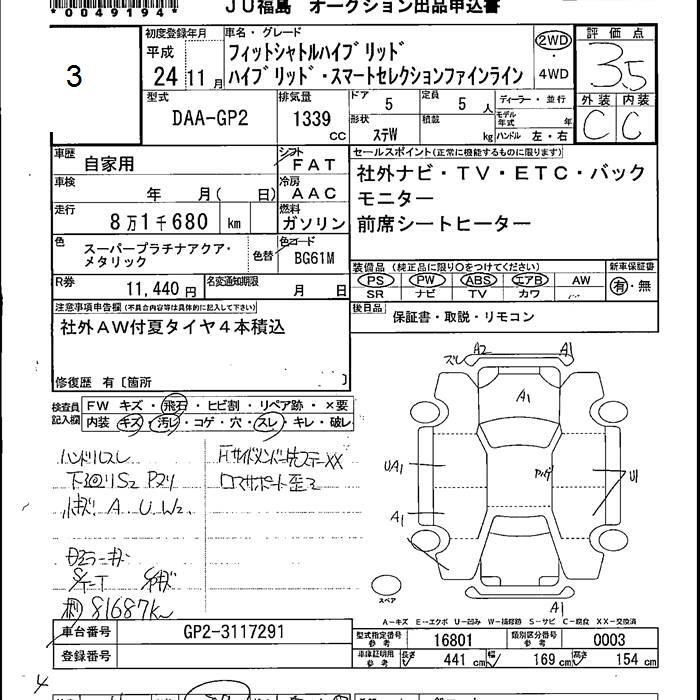 *0049194*
JU福島 オークション出品申込書
3
初度登録年月
平成
24 11月
車名・グレード
フィットシャトルハイブリッド
ハイブリッド・スマートセレクションファインライン
2WD
・
4WD
評価点
3.5
外装 内装
C C
型式
DAA-GP2
排気量
1339
cc
ドア 5
定員 5人
ディーラー・並行
形状 ステW
積載 kg
モデル年式 年
ハンドル 左・右
車歴
自家用
シフト
FAT
セールスポイント(正常に機能するものに限ります)
社外ナビ・TV・ETC・バック
モニター
前席シートヒーター
車検
年 月( 日)
冷房
AAC
走行
8万1千680 km
燃料
ガソリン
色
スーパープラチナアクア・
メタリック
色替
色コード
BG61M
R券
11,440円
名変通知期限
月 日
装備品(純正品に限り○をつけてください)
PS PW ABS エアB AW
SR ナビ TV カワ
新車保証書
有・無
注意事項申告欄(不具合内容等は具体的に記入して下さい)
社外AW付夏タイヤ4本積込
修復歴 有〔箇所 〕
後日品
保証書・取説・リモコン
検査員
記入欄
FW キズ・飛石・ヒビ割・リペア跡・×要
内装 キズ・汚レ・コゲ・穴・スレ・キレ・破レ
ハンドルスレ
A U W2
81687K
ズレ A2 A1
A1
UA1
A1
U1
A1
スペア
A-キズ E-エクボ U-凹み W-補修跡 S-サビ C-腐食 XX-交換済
車台番号
GP2-3117291
登録番号
型式指定番号
参考
16801
類別区分番号
参考
0003
車庫証明用
参考
長さ 441 cm
幅 169 cm
高さ 154 cm